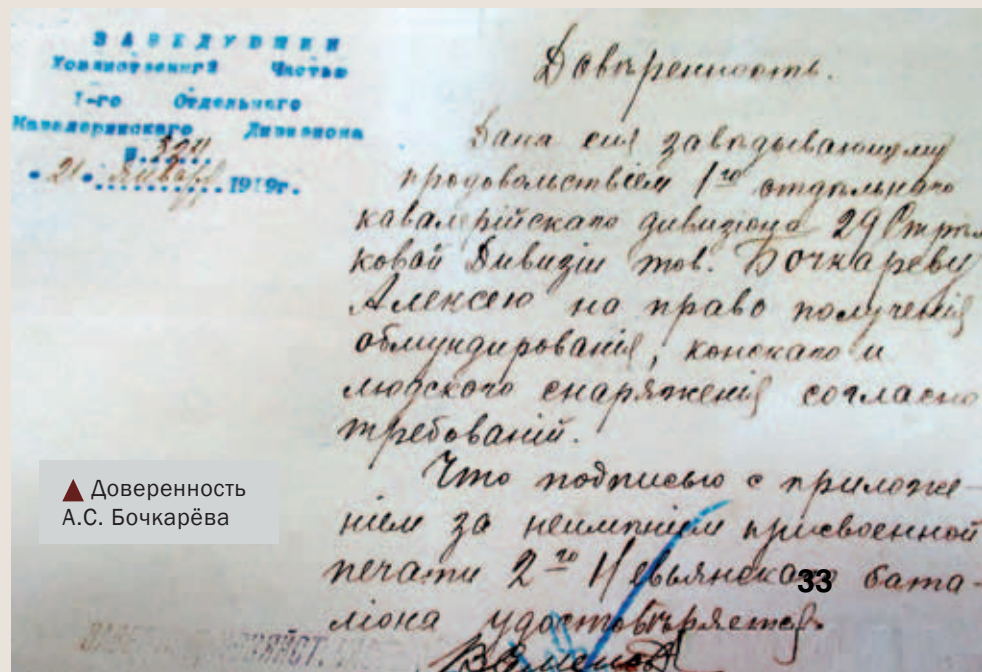 ЗАВЕДУЮЩИЙ
Хозяйственной Частью
1-го Отдельного
Кавалерийского Дивизиона
21 января 1919г.
Довѣренность.
Дана сия завѣдывающему
продовольствіем 1го отдѣльнаго
кавалерійскаго дивизіона 29 Стрѣл
ковой Дивизіи тов. Бочкареву
Алексею на право полученія
обмундированія, конскаго и
людского снаряженія согласно
требованій.
Что подписью с приложе-
нием за неимѣнием присвоенной
печати 2го Невьянскаго бата-
ліона удостовѣряется.
▲ Доверенность
А.С. Бочкарёва
33